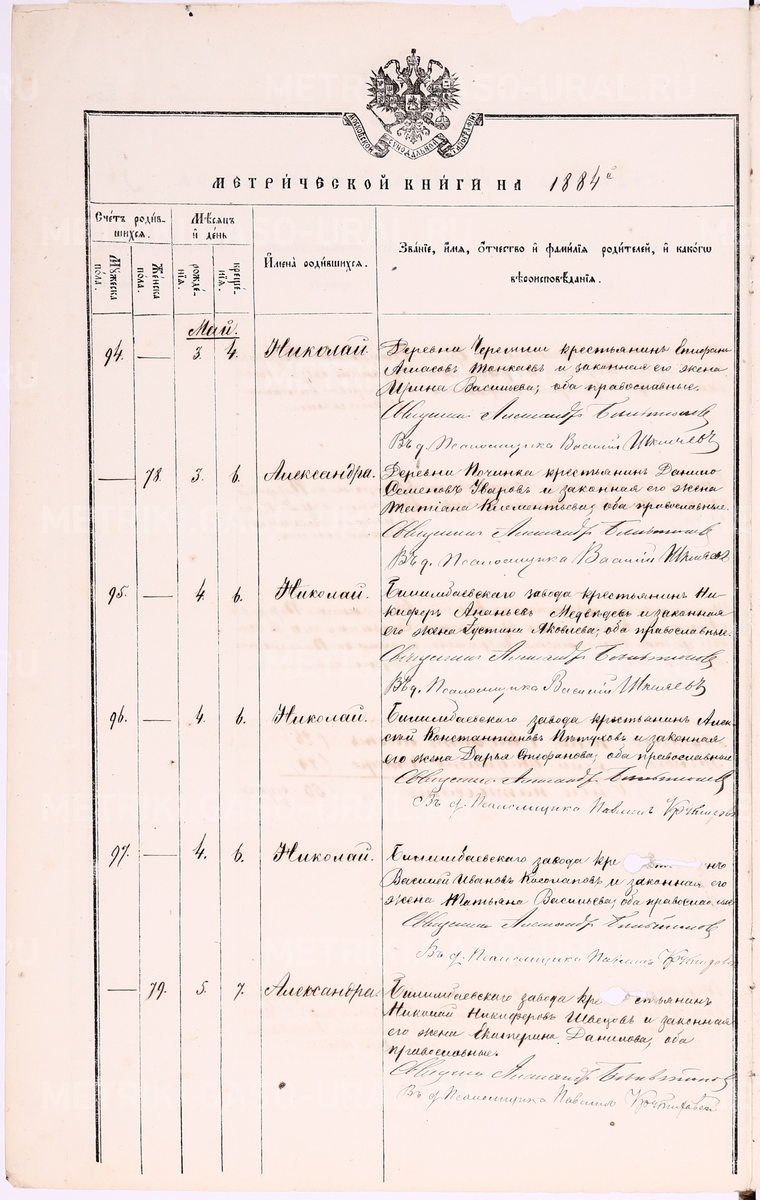 МЕТРИ́ЧЕСКОЙ КНИ́ГИ НА 1884й
Сче́тъ роди́в-
шихся.
Мѣ́сяцъ
и҆ де́нь
И҆мена̀ роди́вшихся.
Зва́нїе, и҆́мя, ѻ҆́тчество и҆ фами́лїя роди́телей, и҆ како́гѡ
вѣроисповѣ́данїя.
Мꙋ́жеска
по́ла.
Же́нска
по́ла.
рожде́-
нїя.
креще́-
нїя.
Май.
94. — 3. 4. Николай Деревни крестьянинъ
и законная его жена
Ирина Васильева; оба православные.
Священникъ Александръ
Въ д. Псаломщика Василий Шкляевъ
— 78. 3. 6. Александра. Деревни Починка крестьянинъ Данило
Семеновъ Уваровъ и законная его жена
Татiана Клементьева; оба православные.
Священникъ Александръ
Въ д. Псаломщика Василий Шкляевъ
95. — 4. 6. Николай. Билимбаевскаго завода крестьянинъ Ни-
кифоръ Ананьевъ Медведевъ и законная
его жена Устина Яковлева; оба православные.
Священникъ Александръ
Въ д. Псаломщика Василий Шкляевъ
96. — 4. 6. Николай. Билимбаевскаго завода крестьянинъ Алек-
сѣй Константиновъ Пѣтуховъ и законная
его жена Дарья Стефанова; оба православные
Священникъ Александръ
Въ д. Псаломщика
97. — 4. 6. Николай. Билимбаевскаго завода кре нъ
Василей Ивановъ Косолаповъ и законная его
жена Татьяна Васильева; оба православные
Священникъ Александръ
Въ д. Псаломщика
— 79. 5. 7. Александра. Билимбаевскаго завода крестьянинъ
Николай Никифоровъ Швецовъ и законная
его жена Екатерина Данилова; оба
православные.
Священникъ Александръ
Въ д. Псаломщика